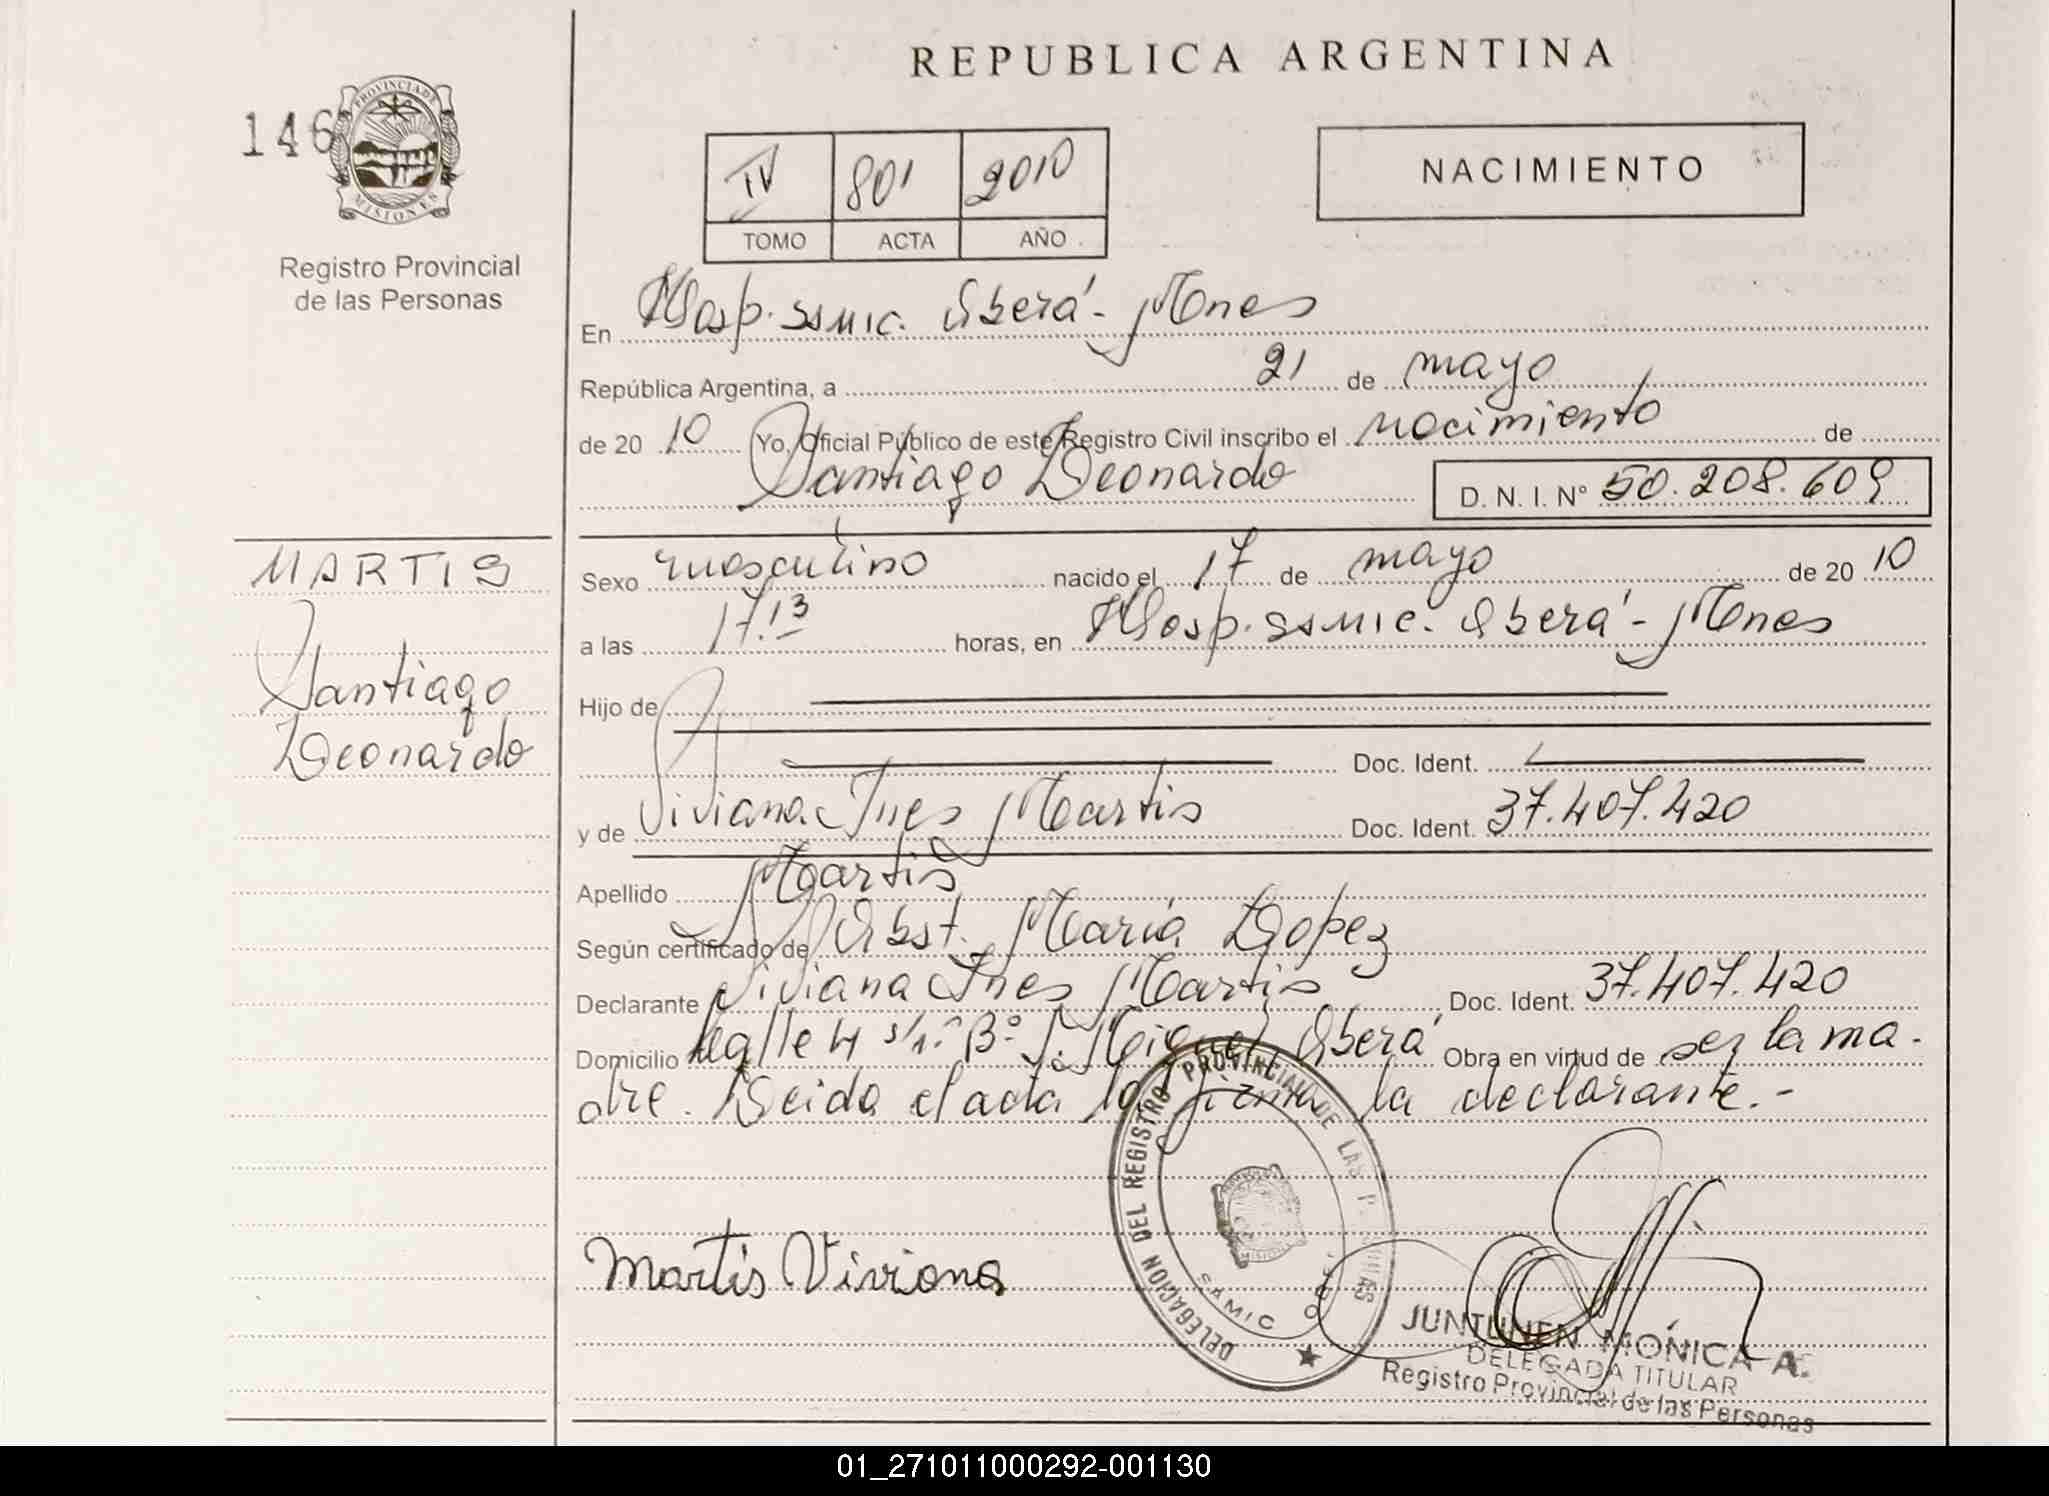 REPUBLICA ARGENTINA
146
PROVINCIA DE MISIONES
Registro Provincial
de las Personas
IV 801 2010
TOMO ACTA AÑO
NACIMIENTO
En Hosp. SAMIC. Oberá - Mnes
República Argentina, a 21 de mayo
de 20 10 Yo, Oficial Público de este Registro Civil inscribo el nacimiento de
Santiago Leonardo D. N. I. N° 50.208.609
MARTIS
Santiago
Leonardo
Sexo masculino nacido el 17 de mayo de 20 10
a las 17.13 horas, en Hosp. SAMIC. Oberá - Mnes
Hijo de
Doc. Ident.
y de Viviana Ines Martis Doc. Ident. 37.407.420
Apellido Martis
Según certificado de Obst. Maria Lopez
Declarante Viviana Ines Martis Doc. Ident. 37.407.420
Domicilio Calle 4 s/n° B° S. Miguel Oberá Obra en virtud de ser la ma-
dre. Leida el acta la firma la declarante.-
Martis Viviana
DELEGACION DEL REGISTRO PROVINCIAL DE LAS PERSONAS
SAMIC
JUNTUNEN MONICA A.
DELEGADA TITULAR
Registro Provincial de las Personas
01_271011000292-001130